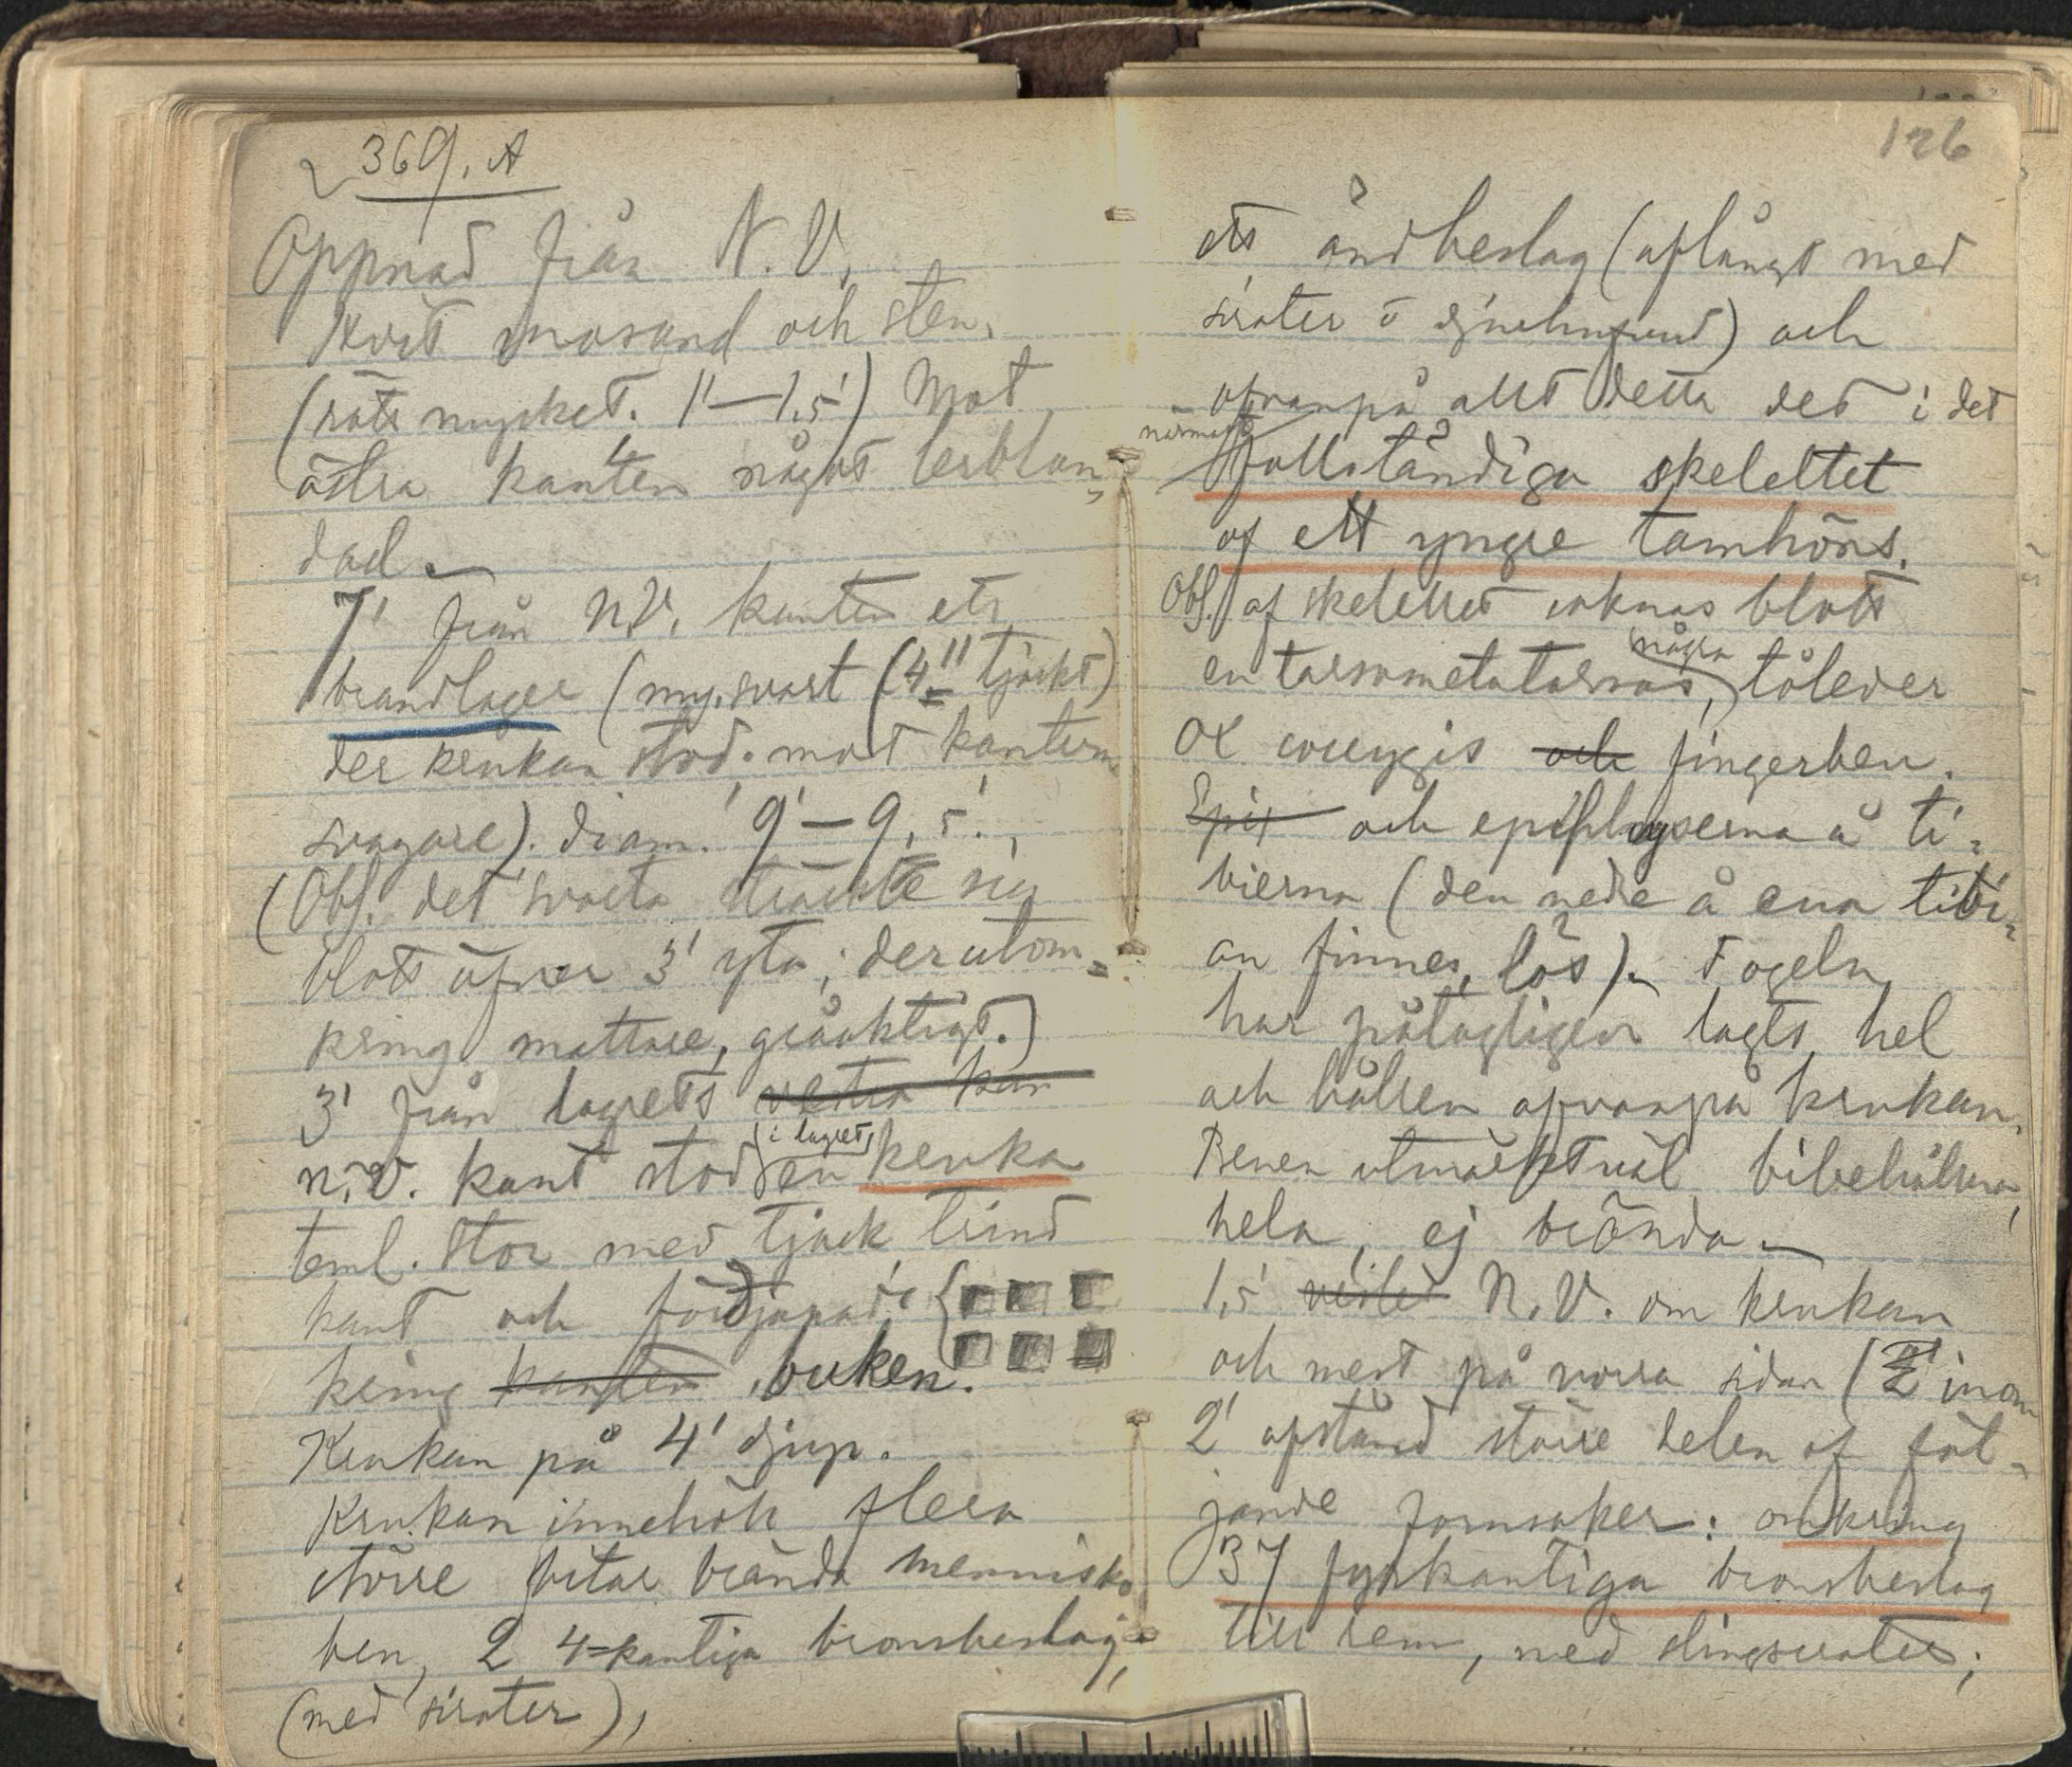 369. A
Öppnad från N. V.
Hvit mosand och sten.
(rätt mycket. 1'—1,5') Mot
östra kanten något lerblan-
dad.
7' från N.V. kanten ett
brandlager (my. svart (4" tjockt)
der krukan stod. mot kanterna
svagare). diam. 9'—9,5'.
(Obs. det svarta sträckte sig
blott öfver 3' yta; derutom-
kring mattare, gråaktigt.)
3' från lagrets vestra kan
n.v. kant stod (i lagret) en kruka
teml. stor med tjock trind
kant och fördjupade
kring kanten buken.
Krukan på 4' djup.
Krukan innehöll flera
större bitar brända mennisko
ben, 2 4-kantiga bronsbeslag,
(med sirater),
126
ett ändbeslag (aflångt med
sirater o djurhufvud) och
ofvanpå allt detta det i det
närmaste
fullständiga skelettet
af ett yngre tamhöns.
Obs. af skelettet saknas blott
en tarsometatarsus, några tåleder
os coccygis och fingerben.
Epip och epiphyserna å ti-
bierna (den nedre å ena tibi-
an finnes lös). Fogeln
har påtagligen lagts hel
och hållen ofvanpå krukan.
Benen utmärkt väl bibehållna,
hela, ej brända.
1,5' vester N.V. om krukan
och mest på norra sidan (2' inom
2' afstånd större delen af föl-
jande fornsaker: omkring
37 fyrkantiga bronsbeslag
till rem, med slingsirater;